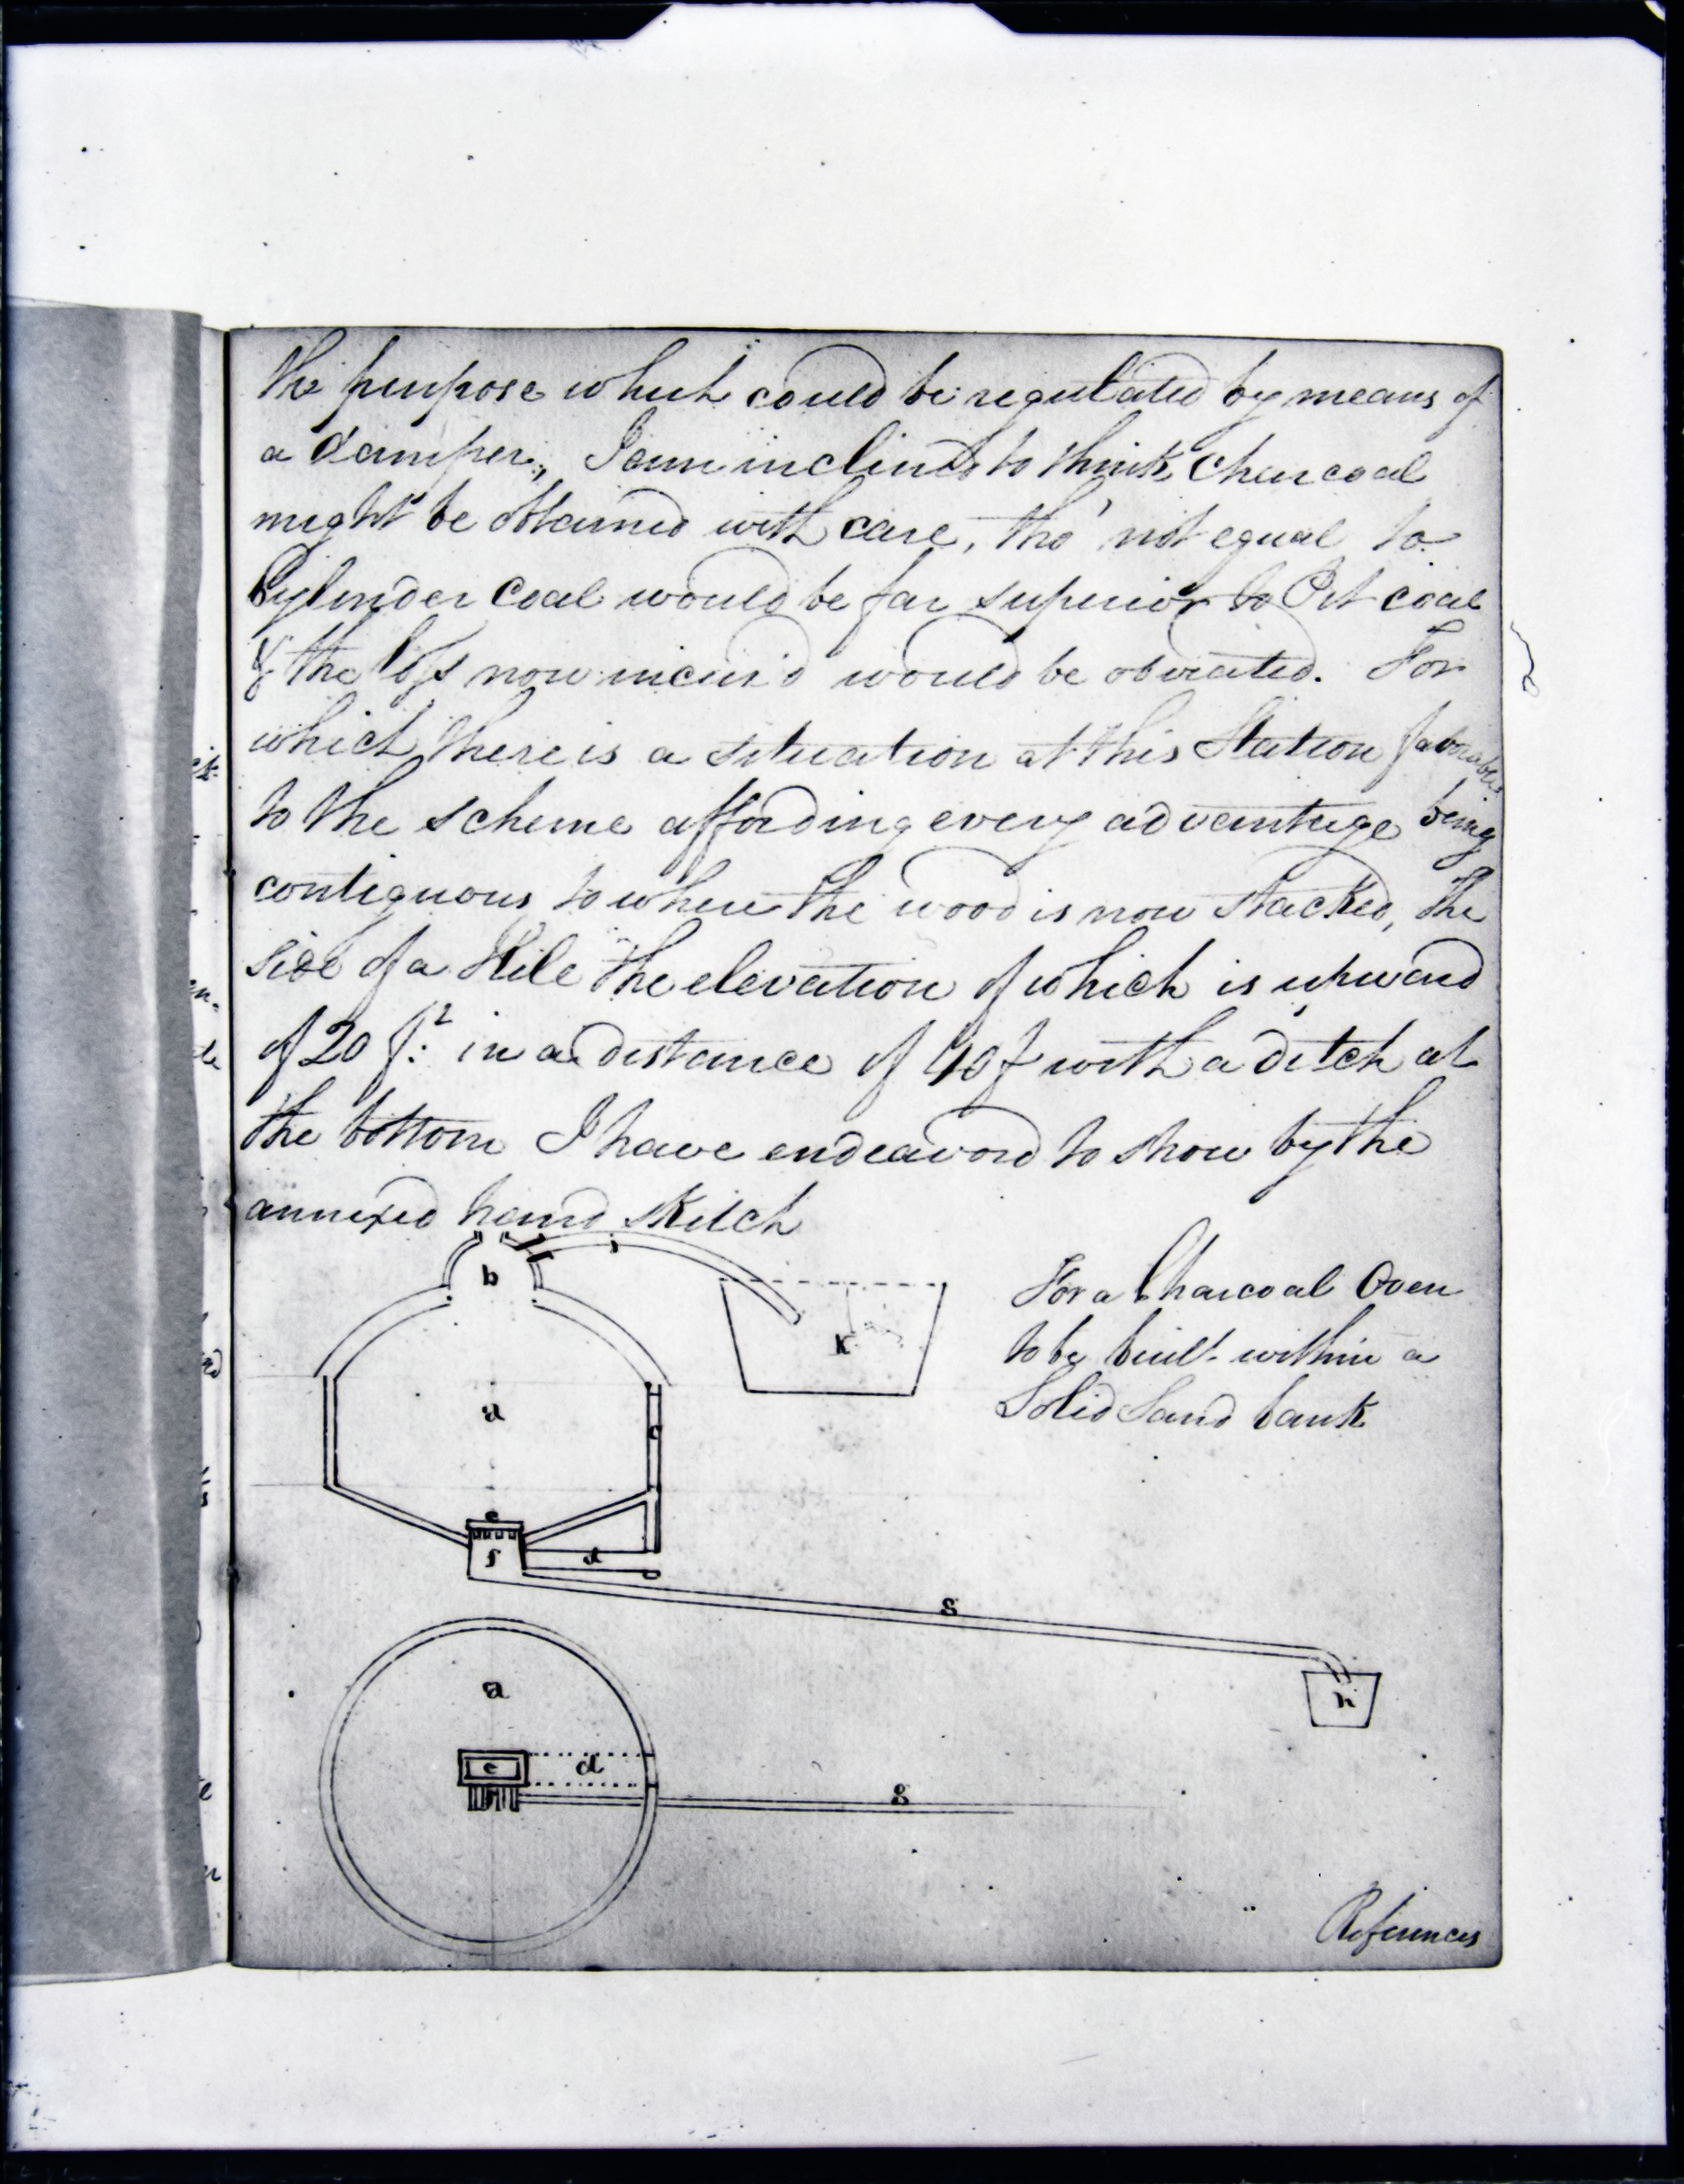 the purpose which could be regulated by means of
a damper, I am inclined to think Charcoal
might be obtained with care, tho' not equal to
Cylinder Coal would be far superior to Pit coal
& the loss now incur'd would be obviated. For
which there is a situation at this Station favorable
to the scheme affording every advantage being
contiguous to where the wood is now stacked, the
side of a Hill the elevation of which is upward
of 20 f.t in a distance of 40 f with a ditch at
the bottom I have endeavord to show by the
annexed hand sketch
For a Charcoal Oven
to be built within a
Solid Sand bank
i
b
K
a
c
e
f
d
S
h
a
e
d
g
References